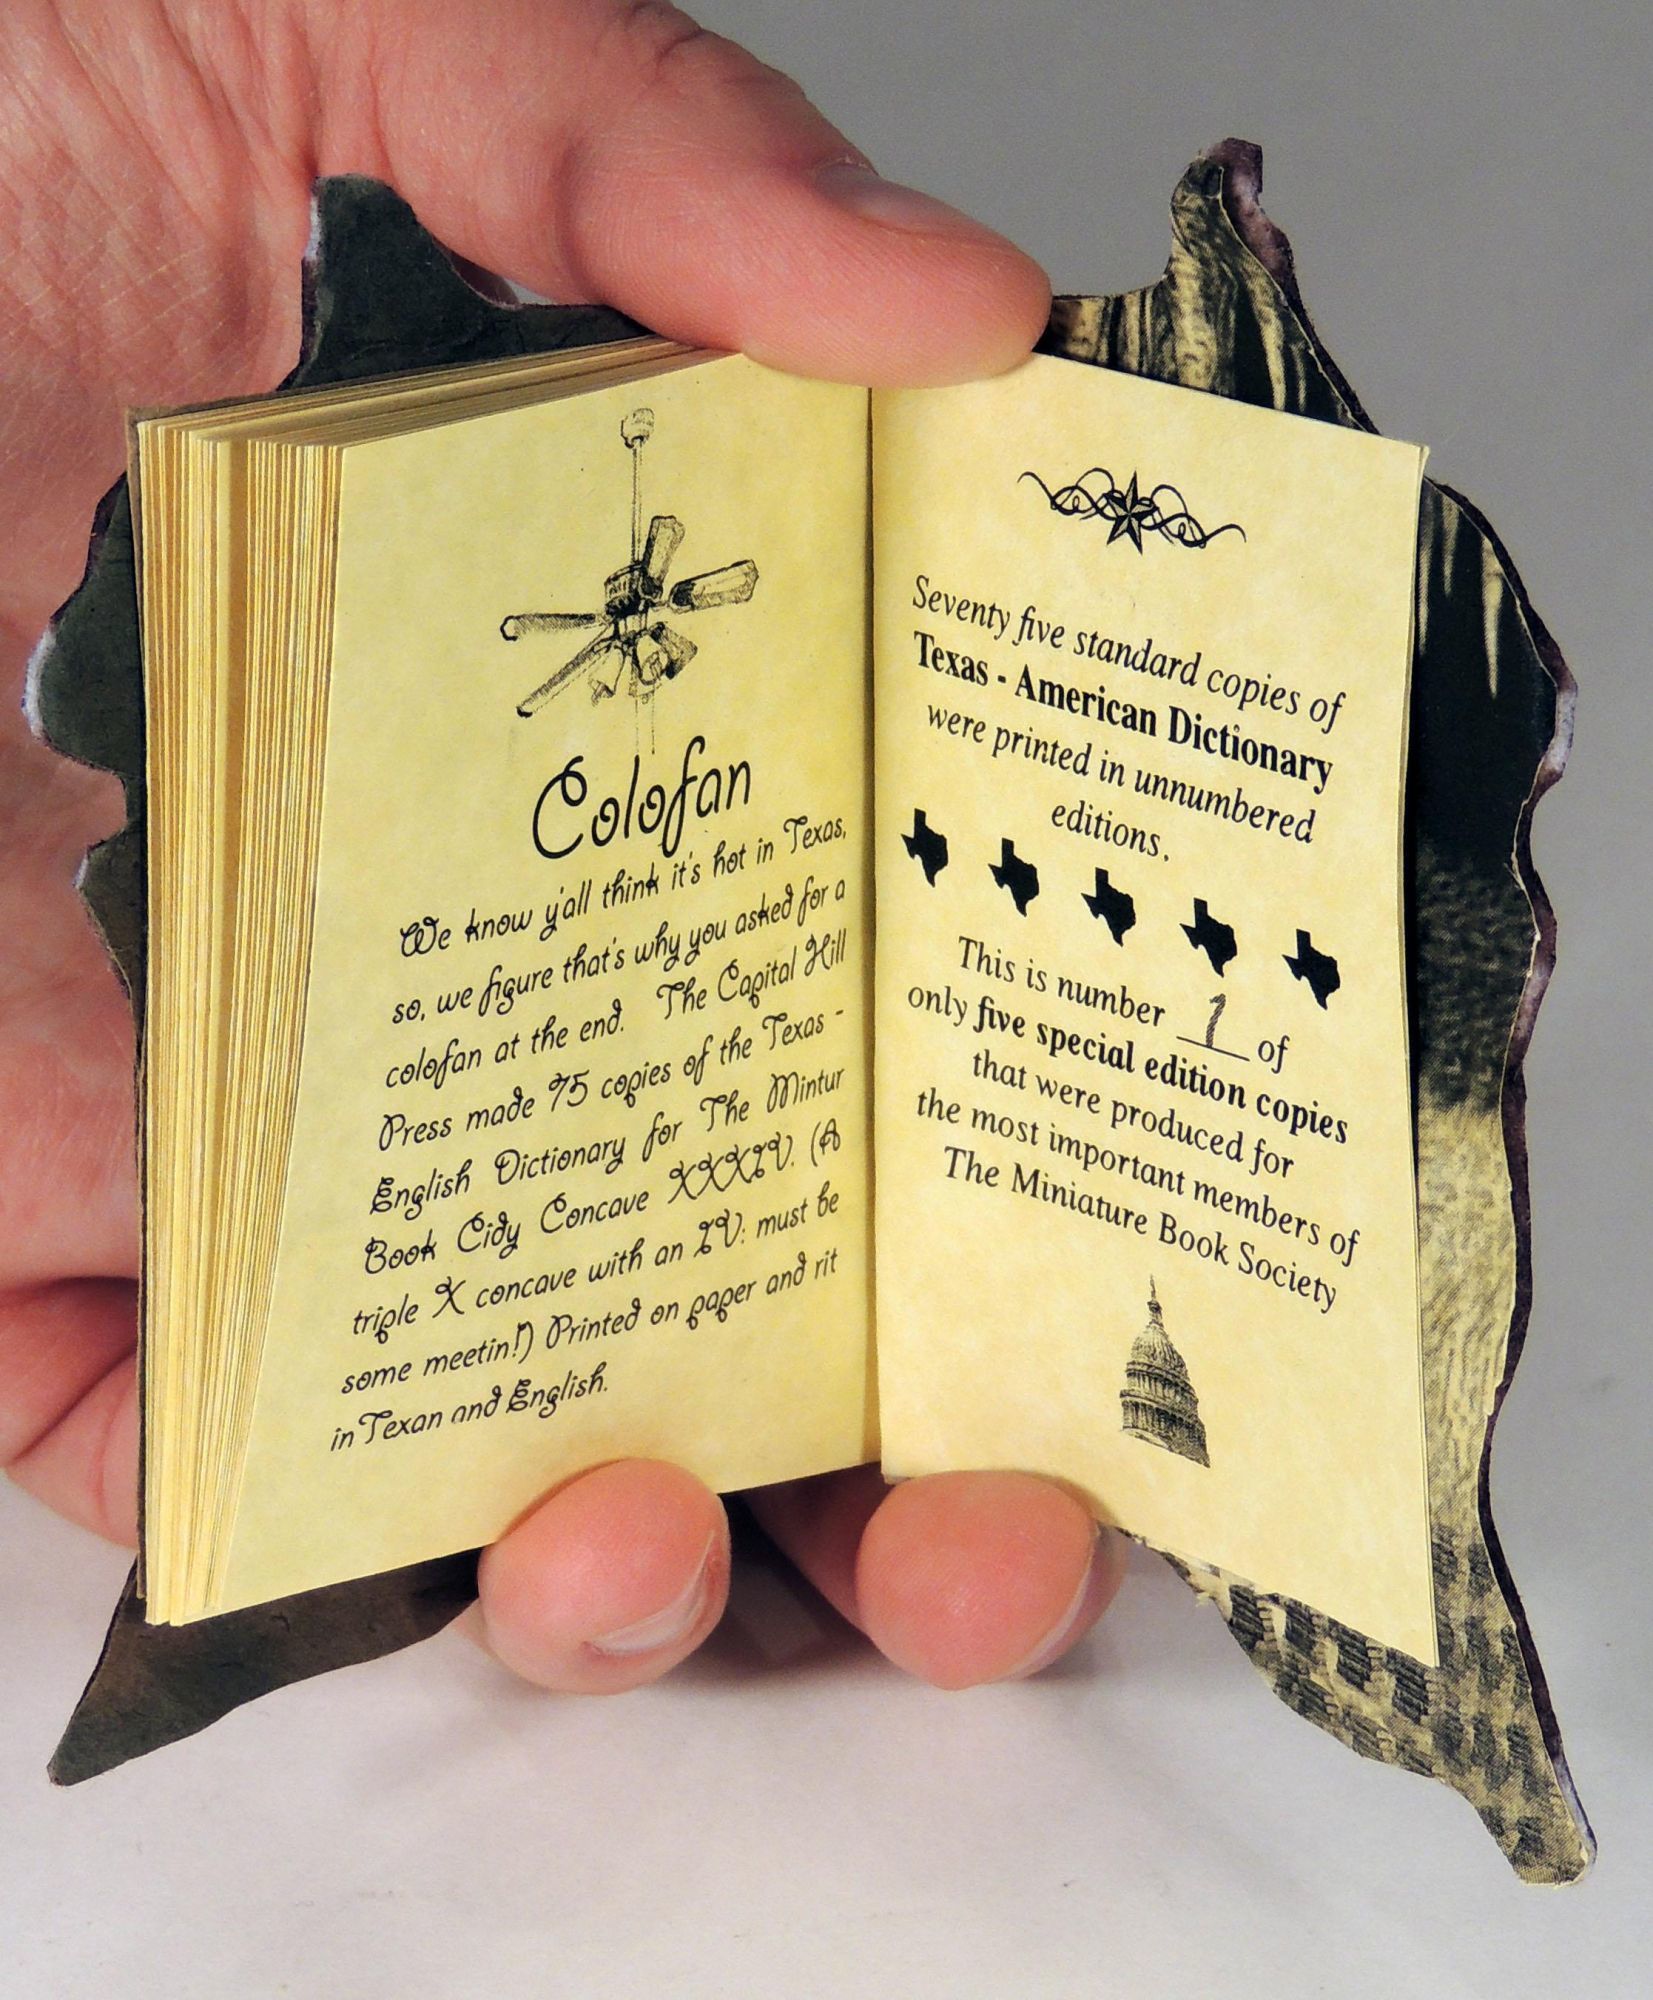 Colofan
We know y'all think it's hot in Texas,
so, we figure that's why you asked for a
colofan at the end. The Capital Hill
Press made 75 copies of the Texas -
English Dictionary for The Mintur
Book Cidy Concave XXXIV. (A
triple X concave with an IV: must be
some meetin!) Printed on paper and rit
in Texan and English.
Seventy five standard copies of
Texas - American Dictionary
were printed in unnumbered
editions.
This is number 1 of
only five special edition copies
that were produced for
the most important members of
The Miniature Book Society